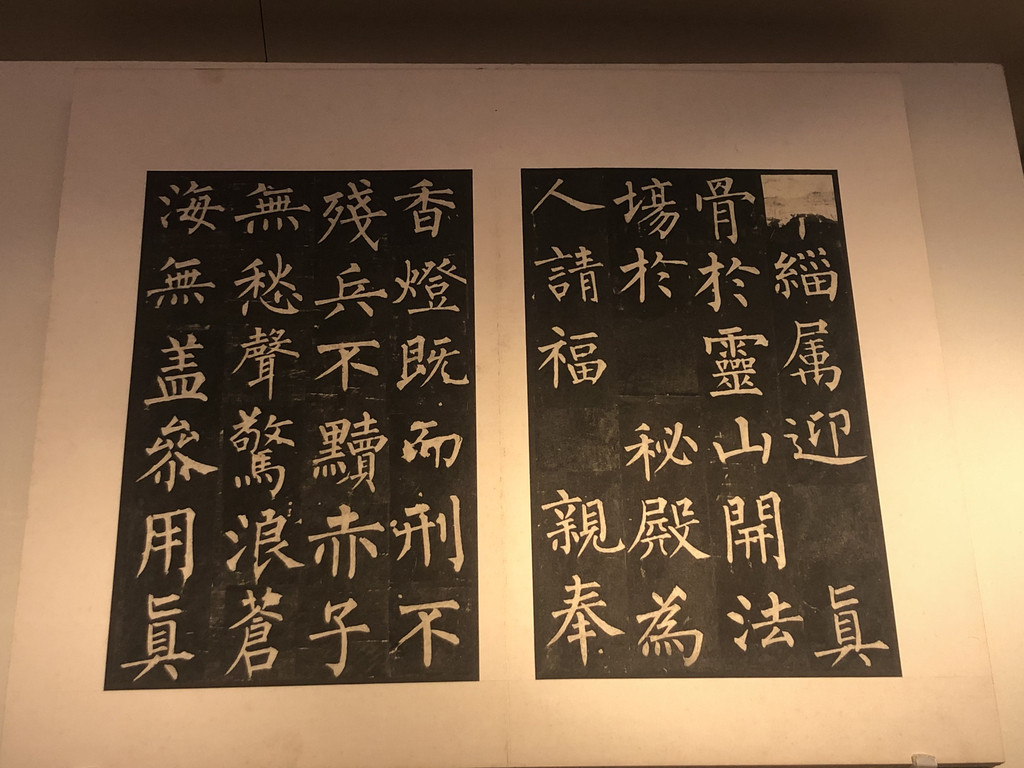 緇属迎眞
骨於靈山開法
場於秘殿為
人請福親奉
香燈既而刑不
殘兵不黷赤子
無愁聲驚浪蒼
海無盖叅用眞